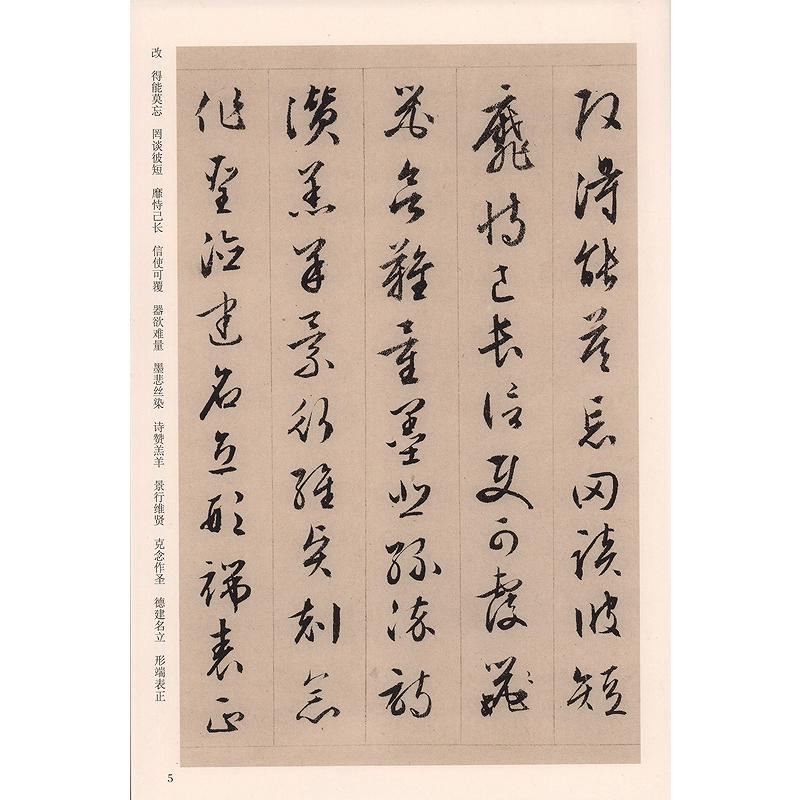 改得能莫忘罔談彼短
靡恃己長信使可覆
器欲難量墨悲絲染詩
讚羔羊景行維賢剋念
作聖德建名立形端表正
改　得能莫忘　罔谈彼短　靡恃己长　信使可覆　器欲难量　墨悲丝染　诗赞羔羊　景行维贤　克念作圣　德建名立　形端表正
5